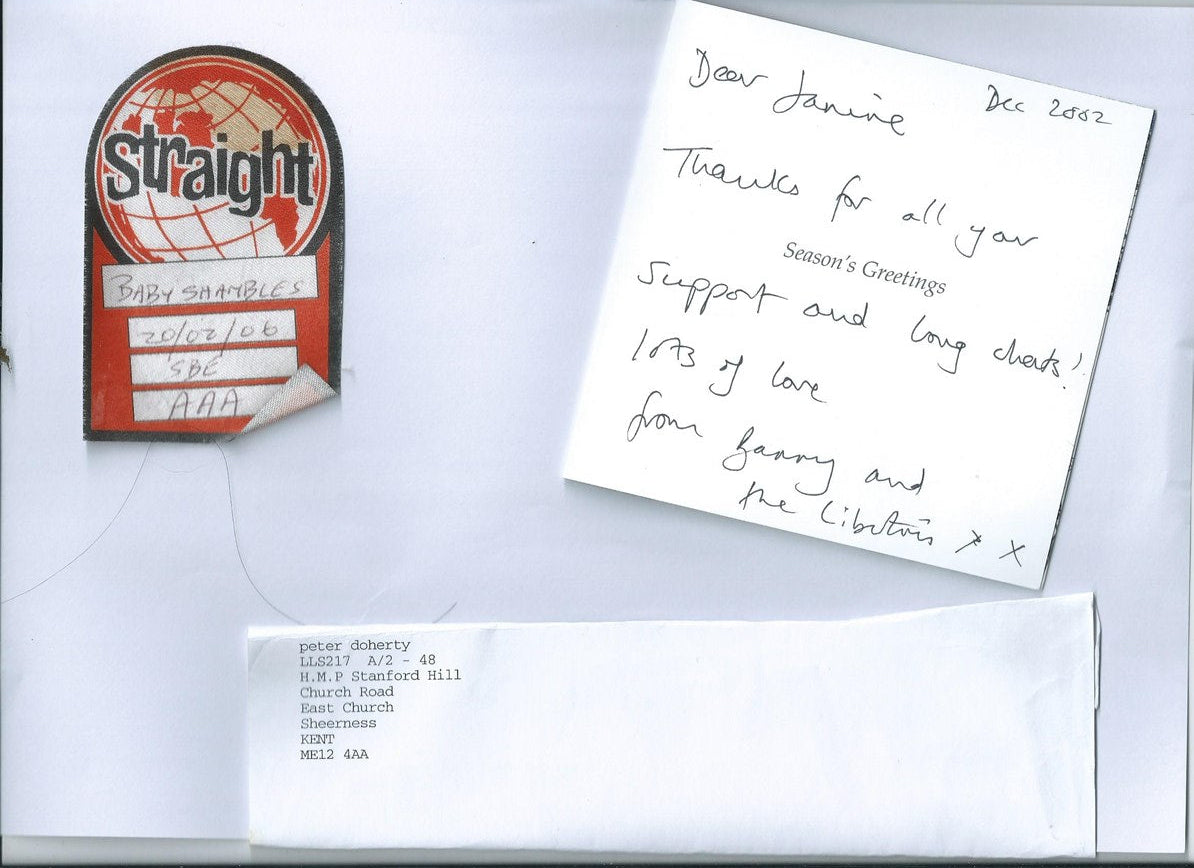 Straight
BABY SHAMBLES
20/02/06
SBE
AAA
Dec 2002
Dear Janine
Thanks for all your
Season's Greetings
support and long chats!
lots of love
from Banny and
the Libertines x x
peter doherty
LLS217 A/2 - 48
H.M.P Stanford Hill
Church Road
East Church
Sheerness
KENT
ME12 4AA